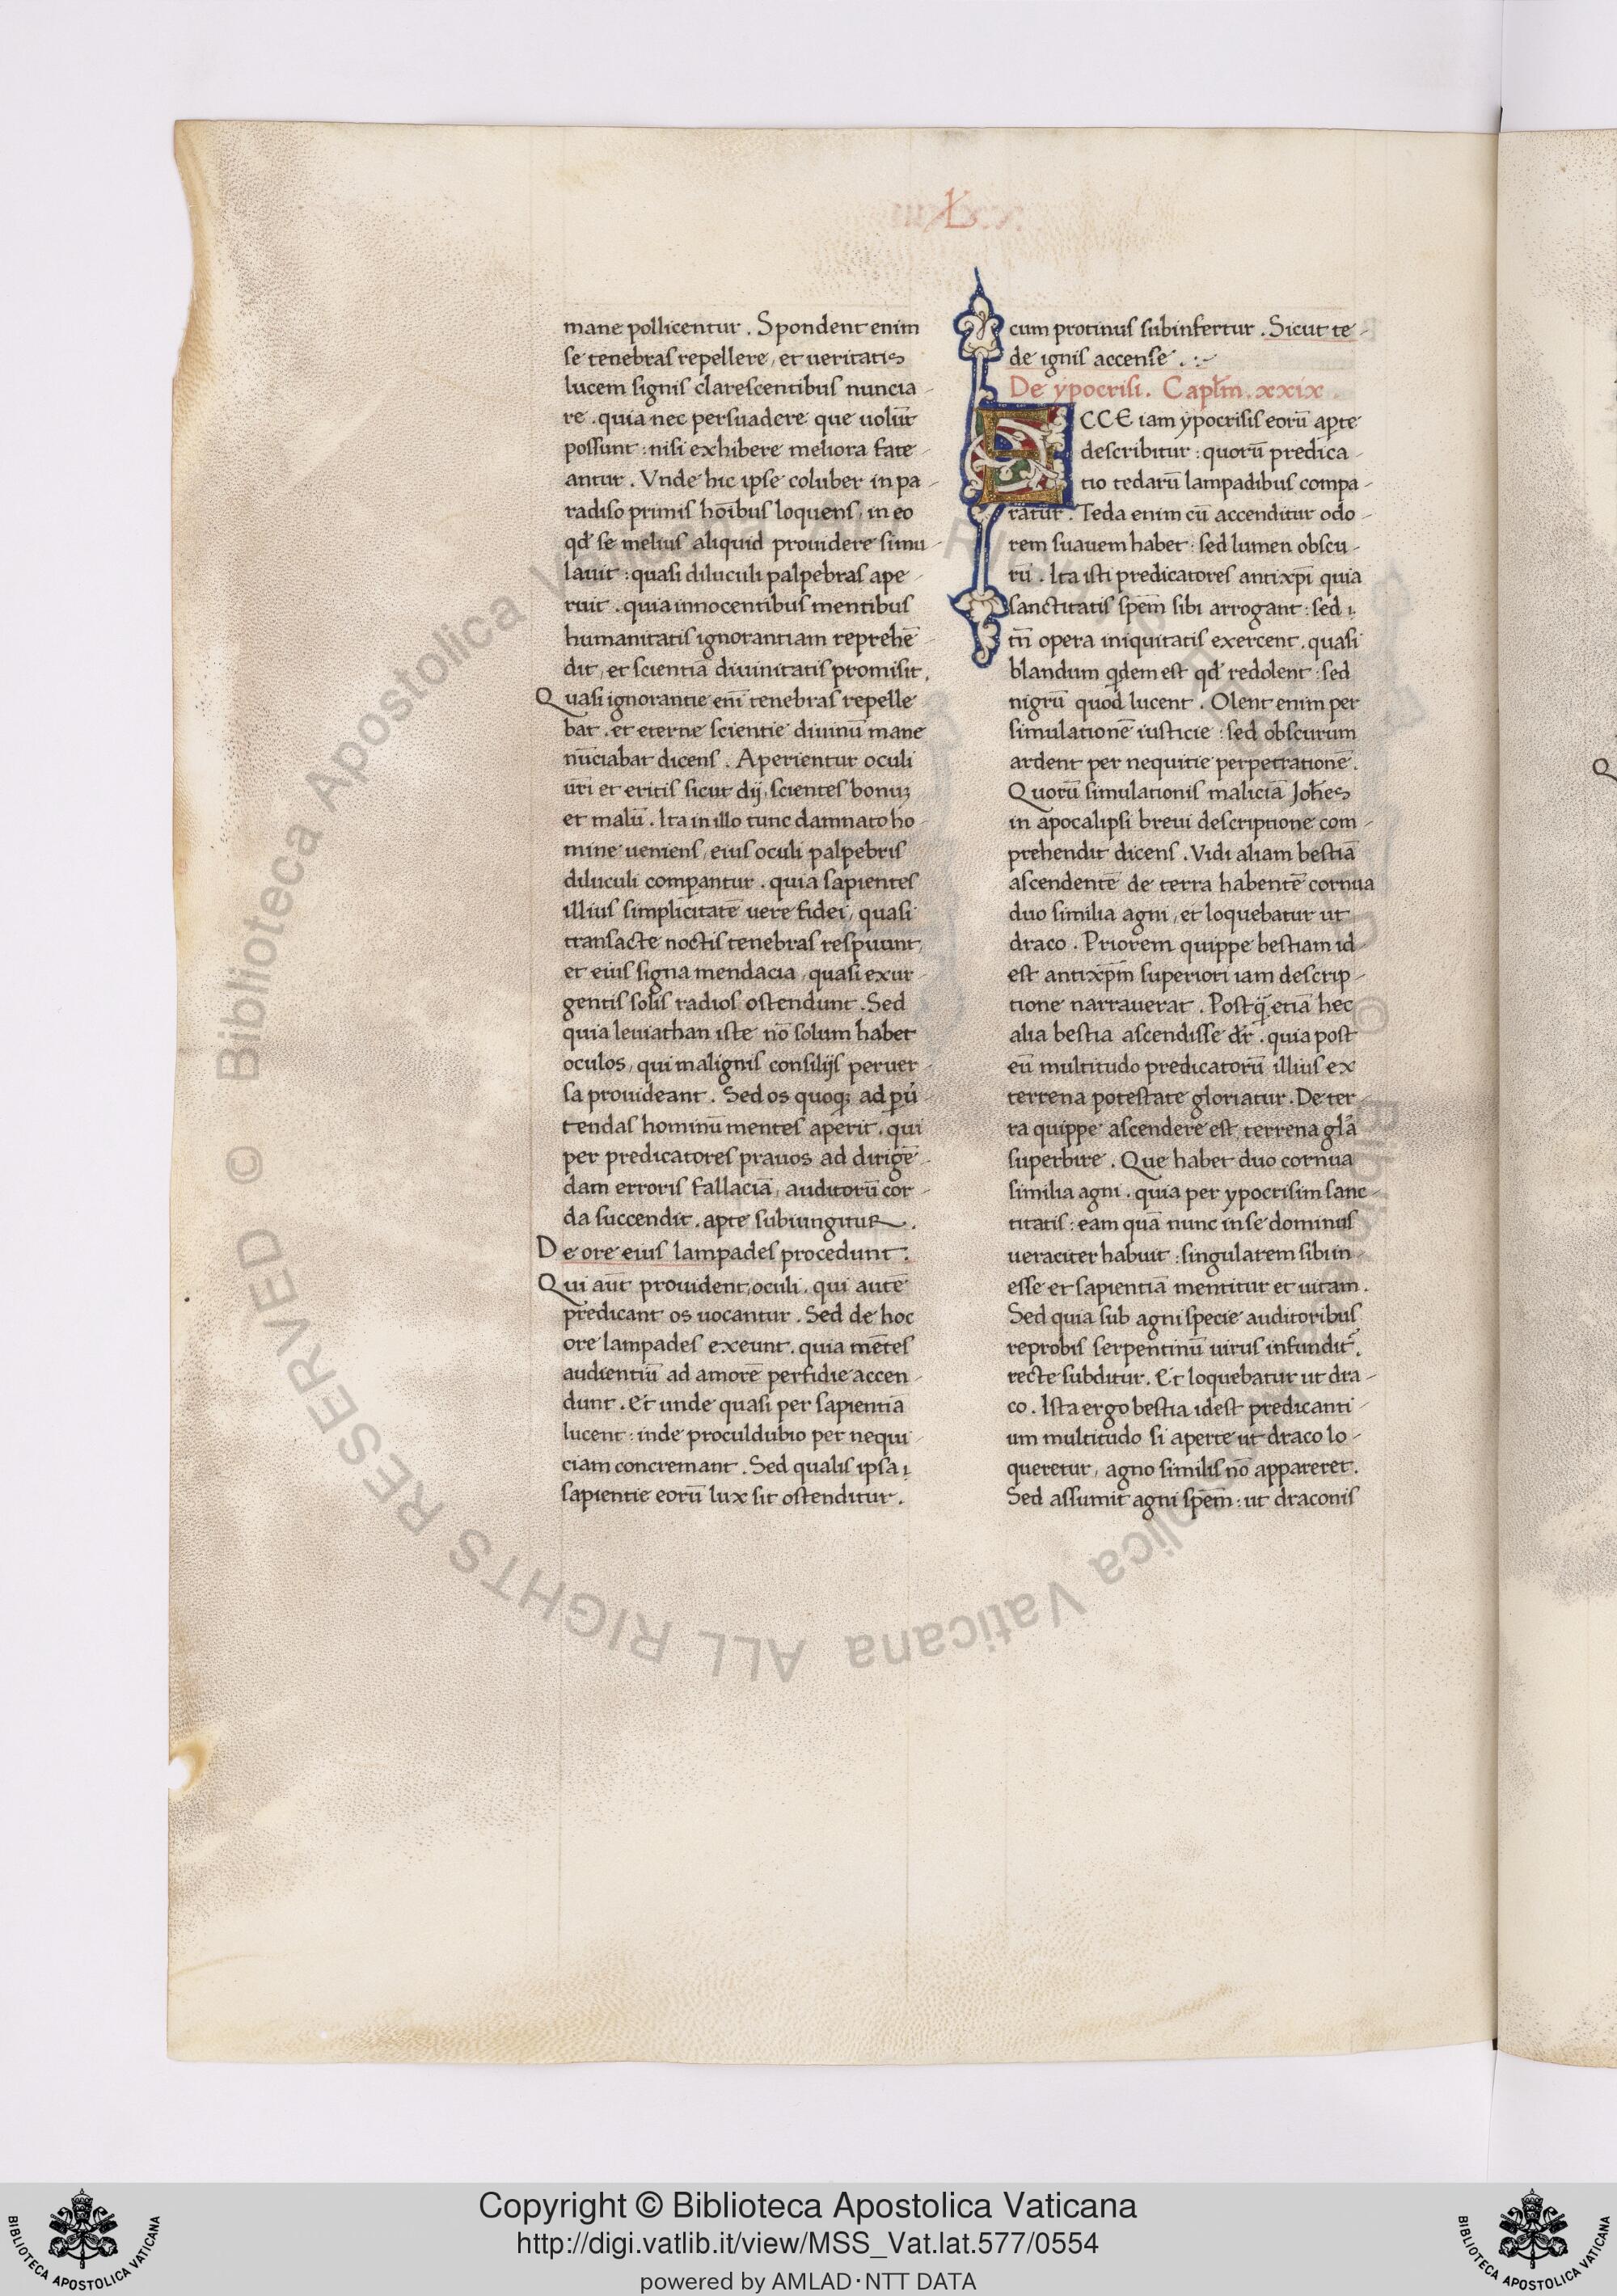 .L.
mane pollicentur . Spondent enim
se tenebras repellere, et ueritatis
lucem signis clarescentibus nuncia-
re . quia nec persuadere que uolūt
possunt : nisi exhibere meliora fate-
antur . Vnde hic ipse coluber in pa-
radiso primis hoībus loquens, in eo
qđ se melius aliquid prouidere simu-
lauit : quasi diluculi palpebras ape-
ruit . quia innocentibus mentibus
humanitatis ignorantiam reprehē-
dit, et scientiā diuinitatis promisit.
Quasi ignorantie eni̅ tenebras repelle
bat . et eterne scientie diuinū mane
nūciabat dicens . Aperientur oculi
ur̄i et eritis sicut dij, scientes bonuʒ
et malū . Ita in illo tunc damnato ho-
mine ueniens, eius oculi palpebris
diluculi compantur . quia sapientes
illius simplicitatē uere fidei, quasi
transacte noctis tenebras respuunt,
et eius signa mendacia, quasi exur-
gentis solis radios ostendunt . Sed
quia leuiathan iste nō solum habet
oculos, qui malignis consilijs peruer-
sa prouideant . Sed os quoqʒ ad pū-
tendas hominū mentes aperit . qui
per predicatores prauos ad dirigē-
dam erroris fallaciā, auditorū cor-
da succendit . apte subiungitur .
De ore eius lampades procedunt .
Qui aūt prouident, oculi, qui autē
predicant os uocantur . Sed de hoc
ore lampades exeunt . quia mētes
audientiū ad amorē perfidie accen-
dunt . Et unde quasi per sapientiā
lucent : inde proculdubio per nequi-
ciam concremant . Sed qualis ipsa
sapientie eorū lux sit ostenditur .
cum protinus subinfertur . Sicut te-
de ignis accense . :~
De ypocrisi . Capłm . xxix .
ECCE iam ypocrisis eorū apte
describitur : quorū predica-
tio tedarū lampadibus compa-
ratur . Teda enim cū accenditur odo-
rem suauem habet : sed lumen obscu-
rū . Ita isti predicatores antixp̄i quia
sanctitatis sp̄em sibi arrogant : sed
tn̄ opera iniquitatis exercent . quasi
blandum qdem est qđ redolent : sed
nigrū quod lucent . Olent enim per
simulationē iusticie : sed obscurum
ardent per nequitie perpetrationē .
Quorū simulationis maliciā Joh̄es
in apocalipsi breui descriptione com-
prehendit dicens . Vidi aliam bestiā
ascendentē de terra habentē cornua
duo similia agni, et loquebatur ut
draco . Priorem quippe bestiam id
est antixp̄m superiori iam descrip-
tione narrauerat . Postq̄ etiā hec
alia bestia ascendisse dr̄ . quia post
eū multitudo predicatorū illius ex
terrena potestate gloriatur . De ter-
ra quippe ascendere est, terrena gl̄a
superbire . Que habet duo cornua
similia agni . quia per ypocrisim sanc-
titatis : eam quā nunc in se dominus
ueraciter habuit : singularem sibi in-
esse et sapientiā mentitur et uitam .
Sed quia sub agni specie auditoribus
reprobis serpentinū uirus infundit᷑ .
recte subditur . Et loquebatur ut dra-
co . Ista ergo bestia idest predicanti-
um multitudo si aperte ut draco lo-
queretur, agno similis nō appareret .
Sed assumit agni sp̄em : ut draconis
Q
© Biblioteca Apostolica Vaticana ALL RIGHTS RESERVED
Copyright © Biblioteca Apostolica Vaticana
http://digi.vatlib.it/view/MSS_Vat.lat.577/0554
powered by AMLAD·NTT DATA
BIBLIOTECA APOSTOLICA VATICANA
BIBLIOTECA APOSTOLICA VATICANA